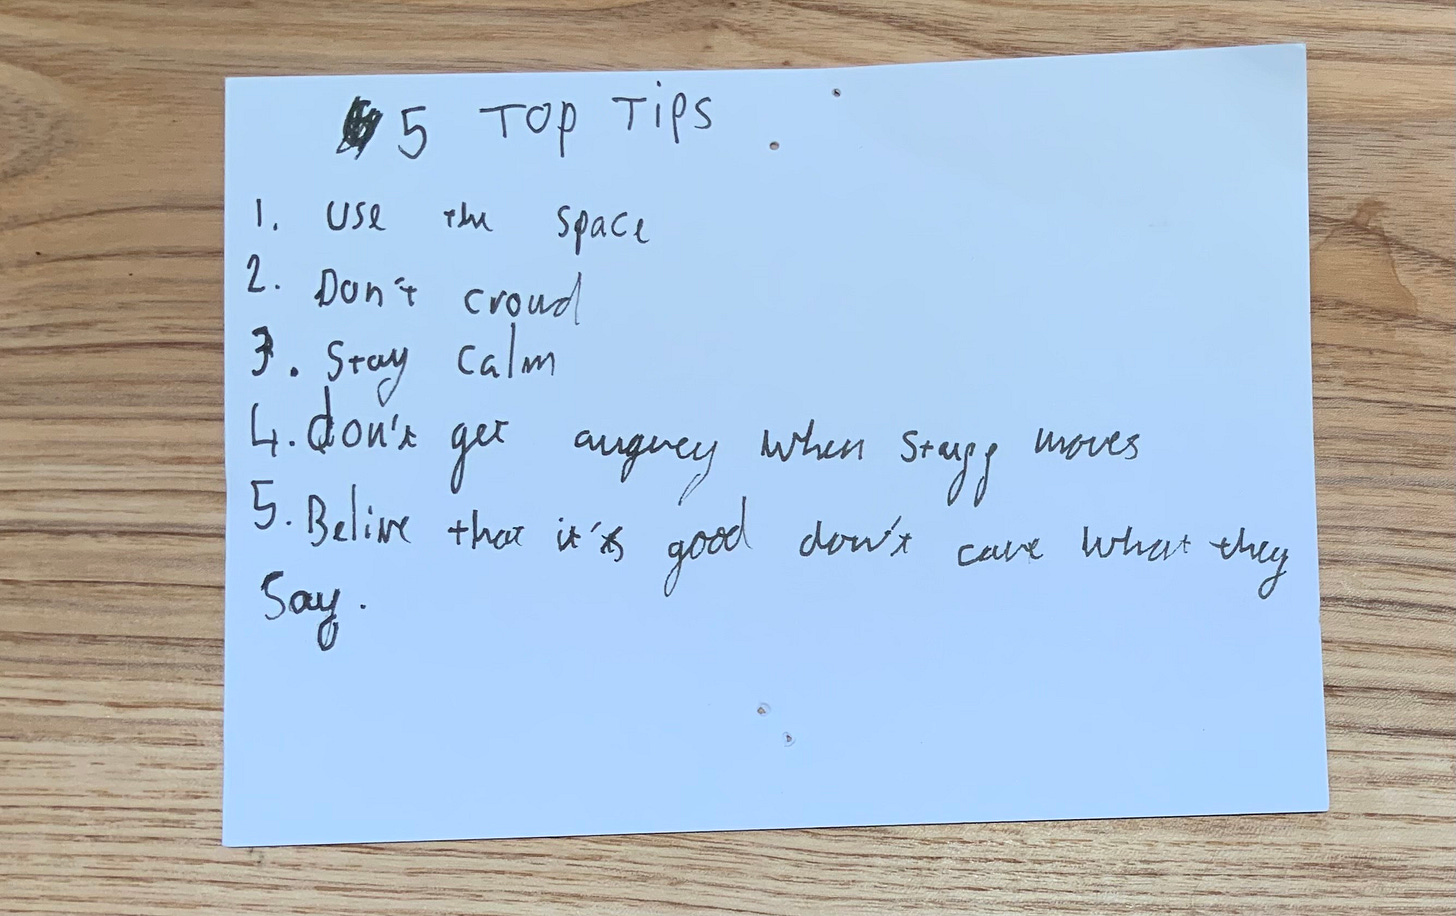 5 TOP TiPS
1. Use the space
2. Don't croud
3. Stay calm
4. don't get angrey when stuff moves
5. Belive that it's good don't care what they
Say.